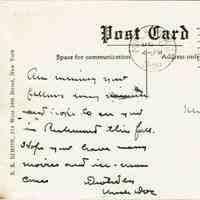 Post Card
Space for communication
Address only
Am missing you
fellows very
and hope to see you
in Richmond this fall.
Hope you have many
movies and ice-cream
cones
Uncle Doc
E. E. SIMON, 214 West 34th Street, New York